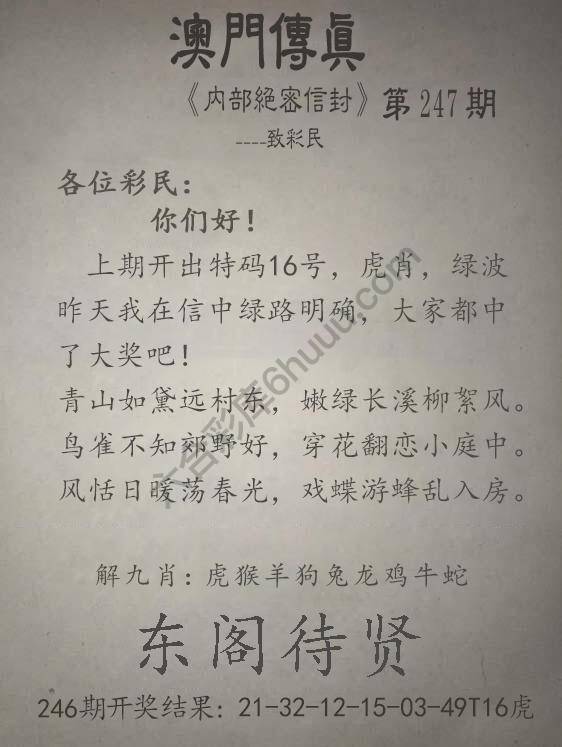 澳門傳眞
《内部絕密信封》第247期
----致彩民
各位彩民：
你们好！
上期开出特码16号，虎肖，绿波
昨天我在信中绿路明确，大家都中
了大奖吧！
青山如黛远村东，嫩绿长溪柳絮风。
鸟雀不知郊野好，穿花翻恋小庭中。
风恬日暖荡春光，戏蝶游蜂乱入房。
解九肖：虎猴羊狗兔龙鸡牛蛇
东阁待贤
246期开奖结果：21-32-12-15-03-49T16虎
六合彩库6huuu.com